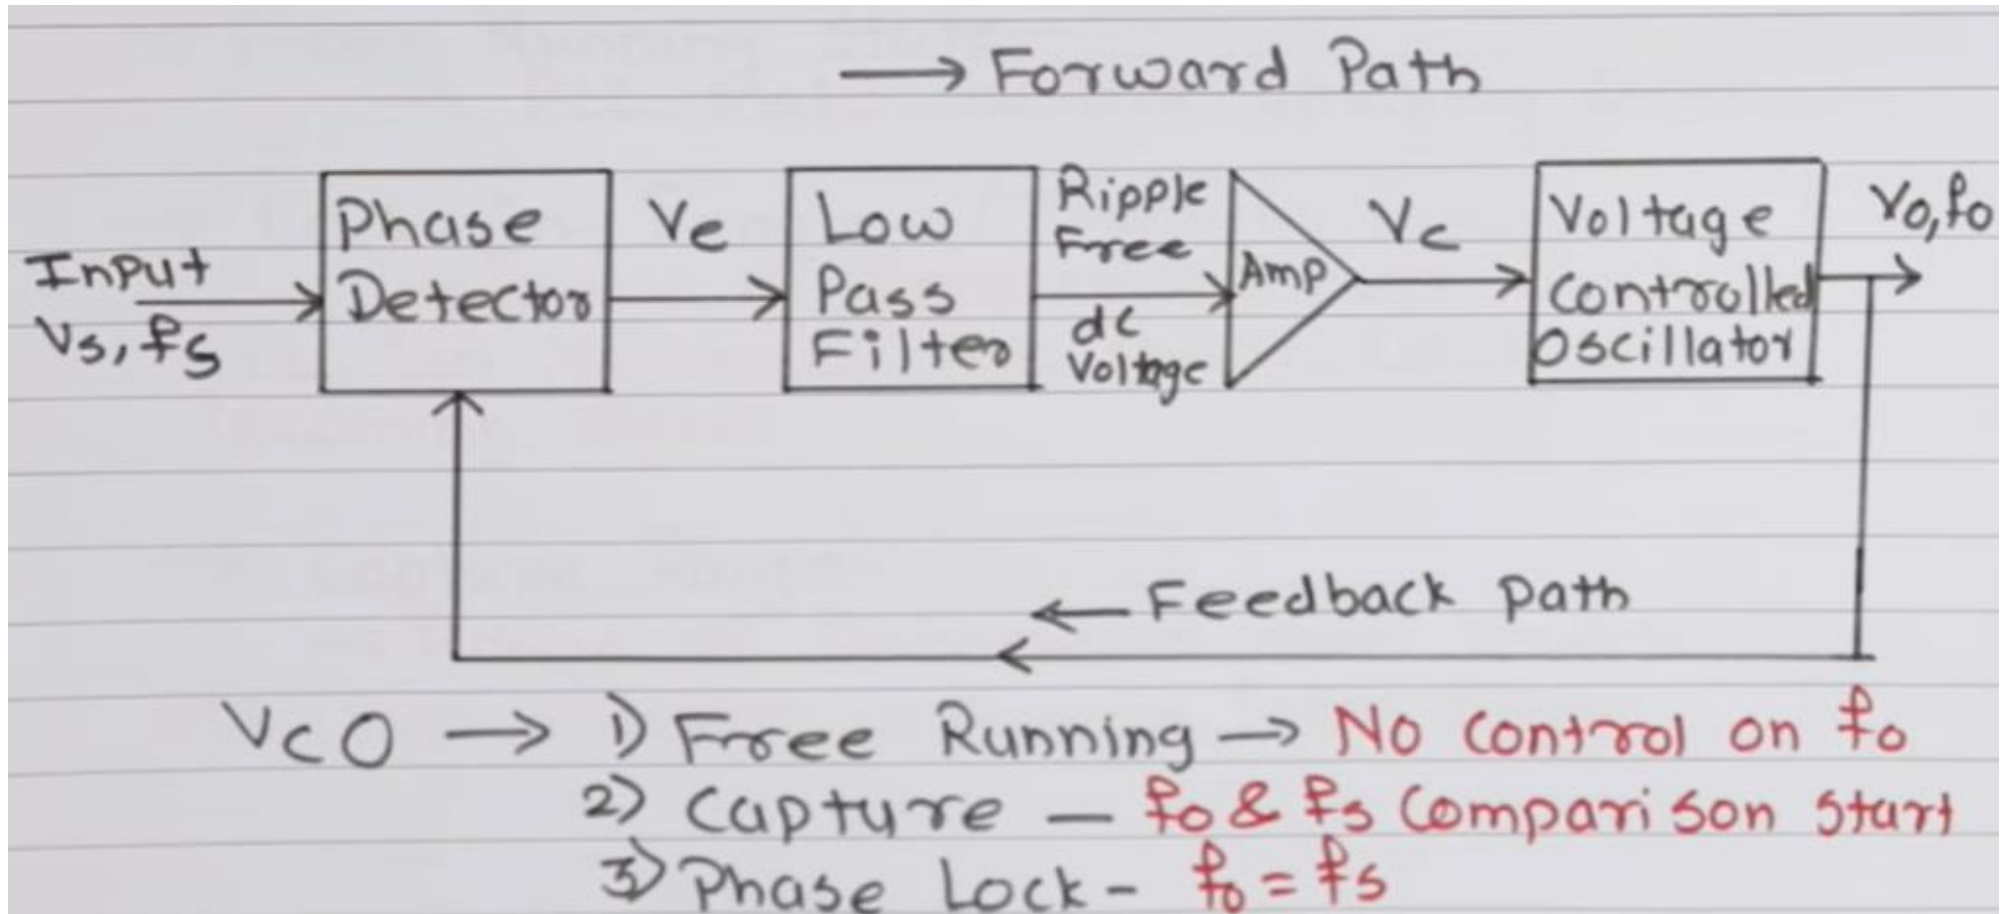 → Forward Path
Input
Vs, fs
Phase
Detector
Ve
Low
Pass
Filter
Ripple
Free
dc
Voltage
Amp
Vc
Voltage
Controlled
Oscillator
Vo, fo
← Feedback Path
VCO → 1) Free Running → No control on fo
2) Capture — fo & fs Comparison start
3) Phase Lock - fo = fs